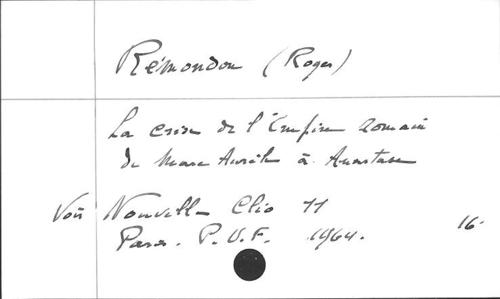 Rémondon (Roger)
La crise de l'Empire romain
de Marc Aurèle à Anastase
Voir Nouvelle Clio 11
Paris. P.U.F. 1964. 16